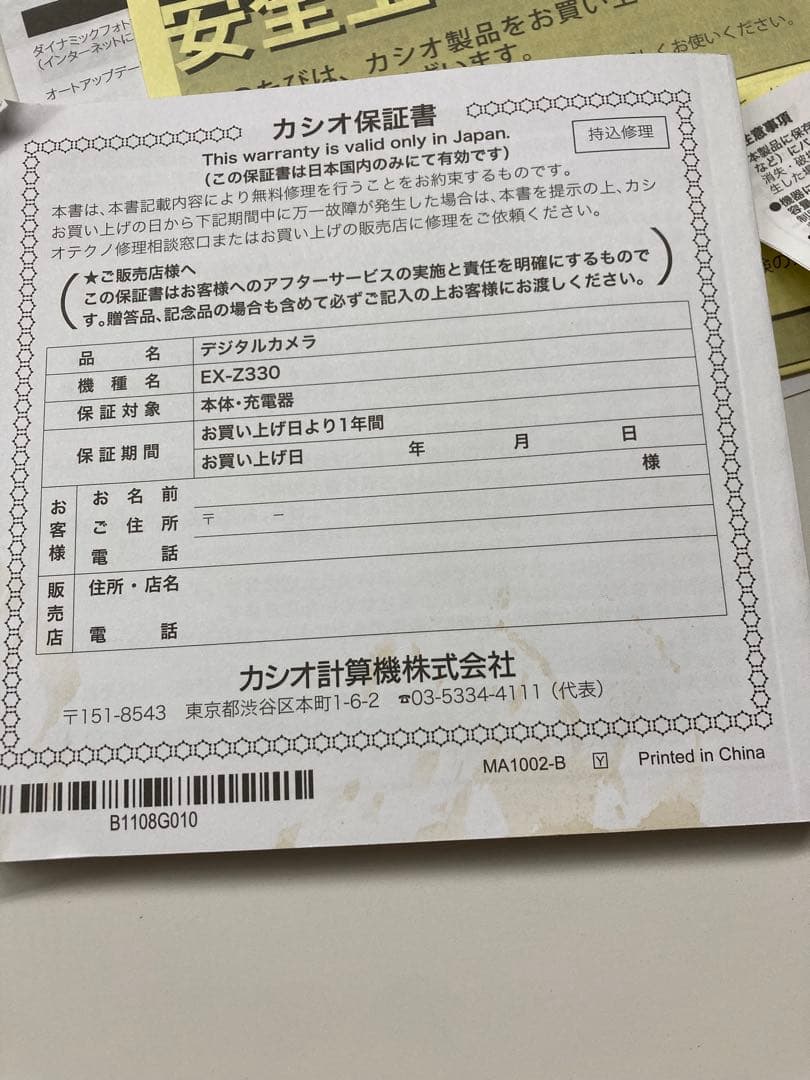 ダイナミックフォト
(インターネットに
オートアップデー
安全上
のたびは、カシオ製品をお買い上
ざいます。
しくお使いください。
注意事項
本製品に保存
など)にバ
消失、破
生した場
●機器
容量
カシオ保証書
持込修理
This warranty is valid only in Japan.
(この保証書は日本国内のみにて有効です)
本書は、本書記載内容により無料修理を行うことをお約束するものです。
お買い上げの日から下記期間中に万一故障が発生した場合は、本書を提示の上、カシ
オテクノ修理相談窓口またはお買い上げの販売店に修理をご依頼ください。
★ご販売店様へ
この保証書はお客様へのアフターサービスの実施と責任を明確にするもので
す。贈答品、記念品の場合も含めて必ずご記入の上お客様にお渡しください。
品名 デジタルカメラ
機種名 EX-Z330
保証対象 本体・充電器
保証期間 お買い上げ日より1年間
お買い上げ日 年 月 日
お客様 お名前 様
ご住所 〒 −
電話
販売店 住所・店名
電話
カシオ計算機株式会社
〒151-8543 東京都渋谷区本町1-6-2 ☎03-5334-4111(代表)
MA1002-B Y Printed in China
B1108G010